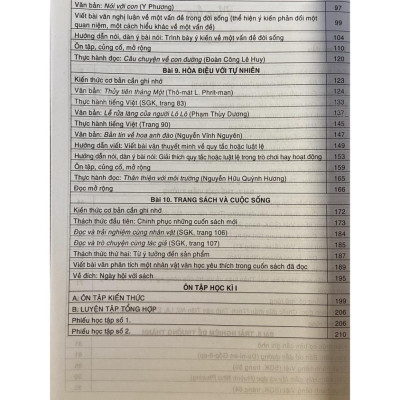 Văn bản: Nói với con (Y Phương) 97
Viết bài văn nghị luận về một vấn đề trong đời sống (thể hiện ý kiến phản đối một quan niệm, một cách hiểu khác về một vấn đề) 99
Hướng dẫn nói, dàn ý bài nói: Trình bày ý kiến về một vấn đề đời sống 104
Ôn tập, củng cố, mở rộng 110
Thực hành đọc: Câu chuyện về con đường (Đoàn Công Lê Huy) 120
Bài 9. HÒA ĐIỆU VỚI TỰ NHIÊN
Kiến thức cơ bản cần ghi nhớ 123
Văn bản: Thủy tiên tháng Một (Thô-mát L. Phrít-man) 124
Thực hành tiếng Việt (SGK, trang 83) 133
Văn bản: Lễ rửa làng của người Lô Lô (Phạm Thùy Dương) 137
Thực hành tiếng Việt (Trang 90) 145
Văn bản: Bản tin về hoa anh đào (Nguyễn Vĩnh Nguyên) 147
Hướng dẫn viết: Viết bài văn thuyết minh về quy tắc hoặc luật lệ 149
Hướng dẫn nói, dàn ý bài nói: Giải thích quy tắc hoặc luật lệ trong trò chơi hay hoạt động 153
Ôn tập, củng cố, mở rộng 159
Thực hành đọc: Thân thiện với môi trường (Nguyễn Hữu Quỳnh Hương) 165
Đọc mở rộng 166
Bài 10. TRANG SÁCH VÀ CUỘC SỐNG
Kiến thức cơ bản cần ghi nhớ 172
Thách thức đầu tiên: Chinh phục những cuốn sách mới 173
Đọc và trải nghiệm cùng nhân vật (SGK, trang 106) 184
Đọc và trò chuyện cùng tác giả (SGK, trang 107) 185
Thách thức thứ hai: Từ ý tưởng đến sản phẩm 187
Viết bài văn phân tích một nhân vật văn học yêu thích trong cuốn sách đã đọc 189
Về đích: Ngày hội với sách 195
ÔN TẬP HỌC KÌ I
A: ÔN TẬP KIẾN THỨC 199
B: LUYỆN TẬP TỔNG HỢP 206
Phiếu học tập số 1. 206
Phiếu học tập số 2. 210